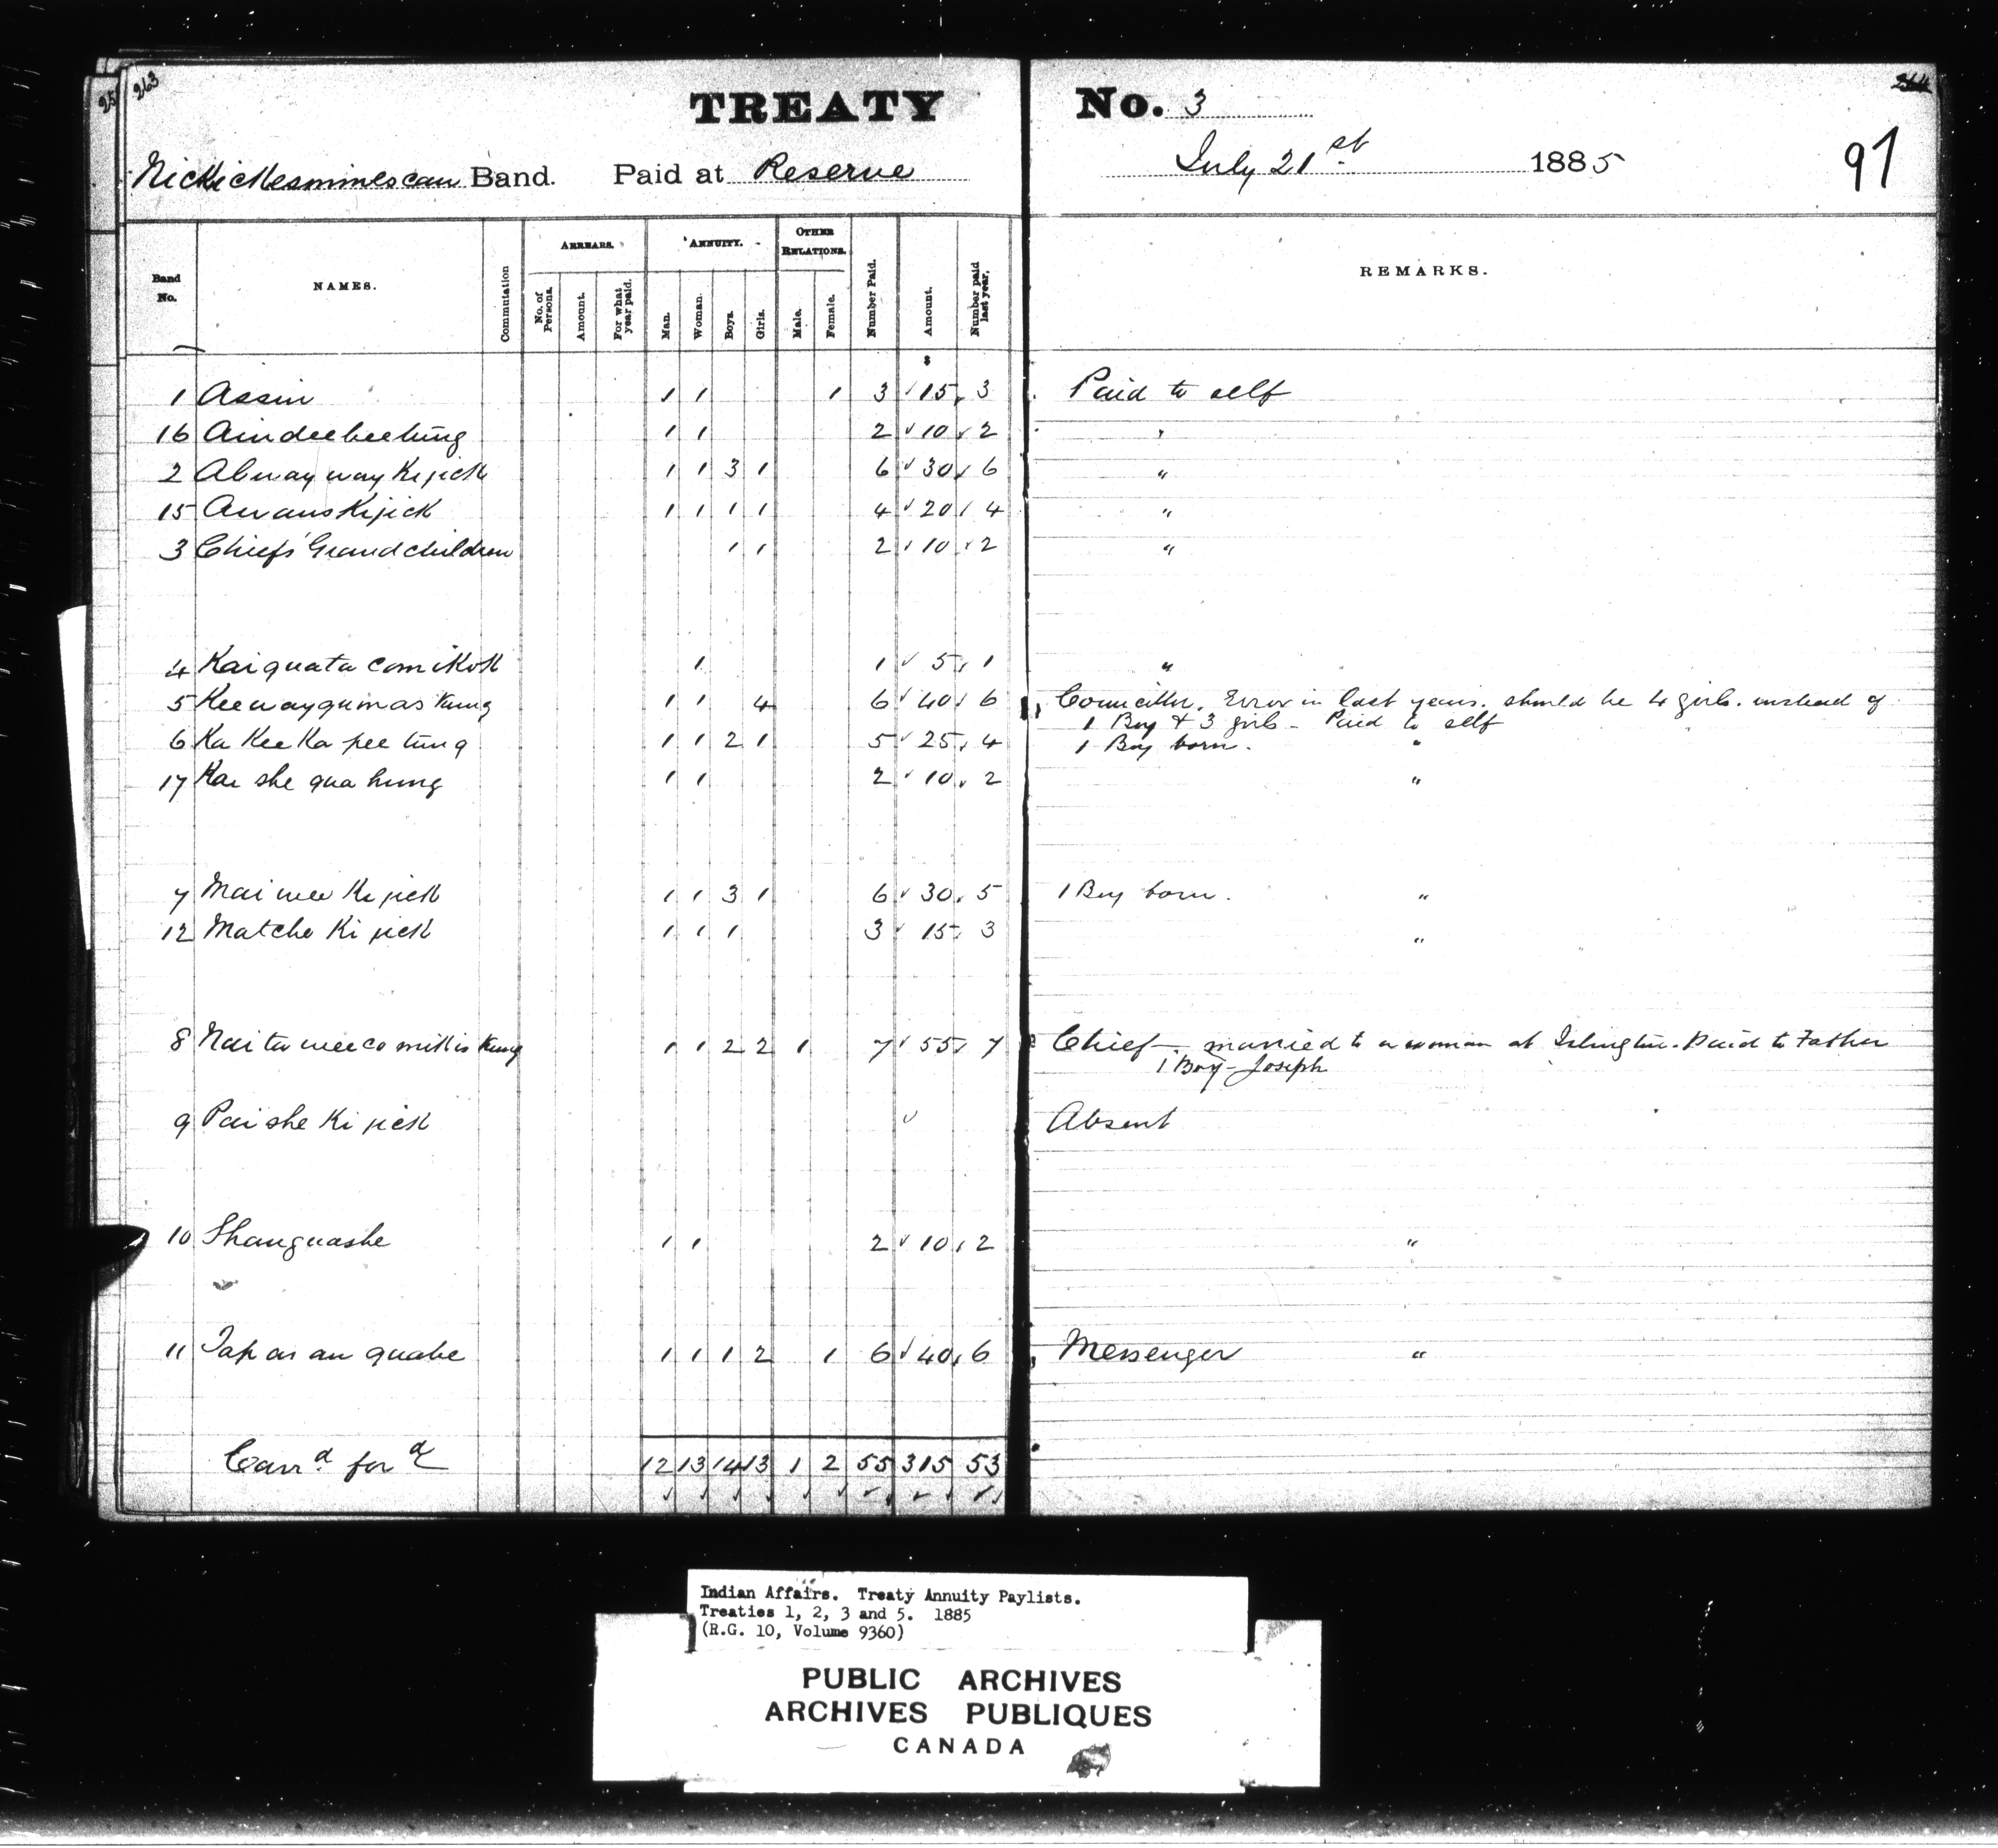 263
TREATY No. 3
Nickickesminescan Band. Paid at Reserve July 21st 1885
97
Band No. NAMES. Commutation ARREARS. No. of Persons. Amount. For what year paid. ANNUITY. Man. Woman. Boys. Girls. OTHER RELATIONS. Male. Female. Number Paid. Amount. Number paid last year. REMARKS.
$
1 Assin 1 1 1 3 15 3 Paid to self
16 Aindeebeetung 1 1 2 10 2 "
2 Abway way Kijick 1 1 3 1 6 30 6 "
15 Awans Kijick 1 1 1 1 4 20 4 "
3 Chiefs' Grandchildren 1 1 2 10 2 "
4 Kaiquata comikok 1 1 5 1 "
5 Keewayguinaskung 1 1 4 6 40 6 Councillor. Error in last years. should be 4 girls. instead of
1 Boy & 3 girls - Paid to self
6 Ka Kee Ka pee tung 1 1 2 1 5 25 4 1 Boy born. "
17 Kai she qua hung 1 1 2 10 2 "
7 Mai wee Ki jick 1 1 3 1 6 30 5 1 Boy born. "
12 Matche Ki jick 1 1 1 3 15 3 "
8 Nai ta wee co mikis kung 1 1 2 2 1 7 55 7 Chief - married to a woman at Islington. Paid to Father
1 Boy - Joseph
9 Pai she Ki jick Absent
10 Shanguashe 1 1 2 10 2 "
11 Tap as an quabe 1 1 1 2 1 6 40 6 Messenger "
Carrd ford 12 13 14 13 1 2 55 315 53
Indian Affairs. Treaty Annuity Paylists.
Treaties 1, 2, 3 and 5. 1885
(R.G. 10, Volume 9360)
PUBLIC ARCHIVES
ARCHIVES PUBLIQUES
CANADA